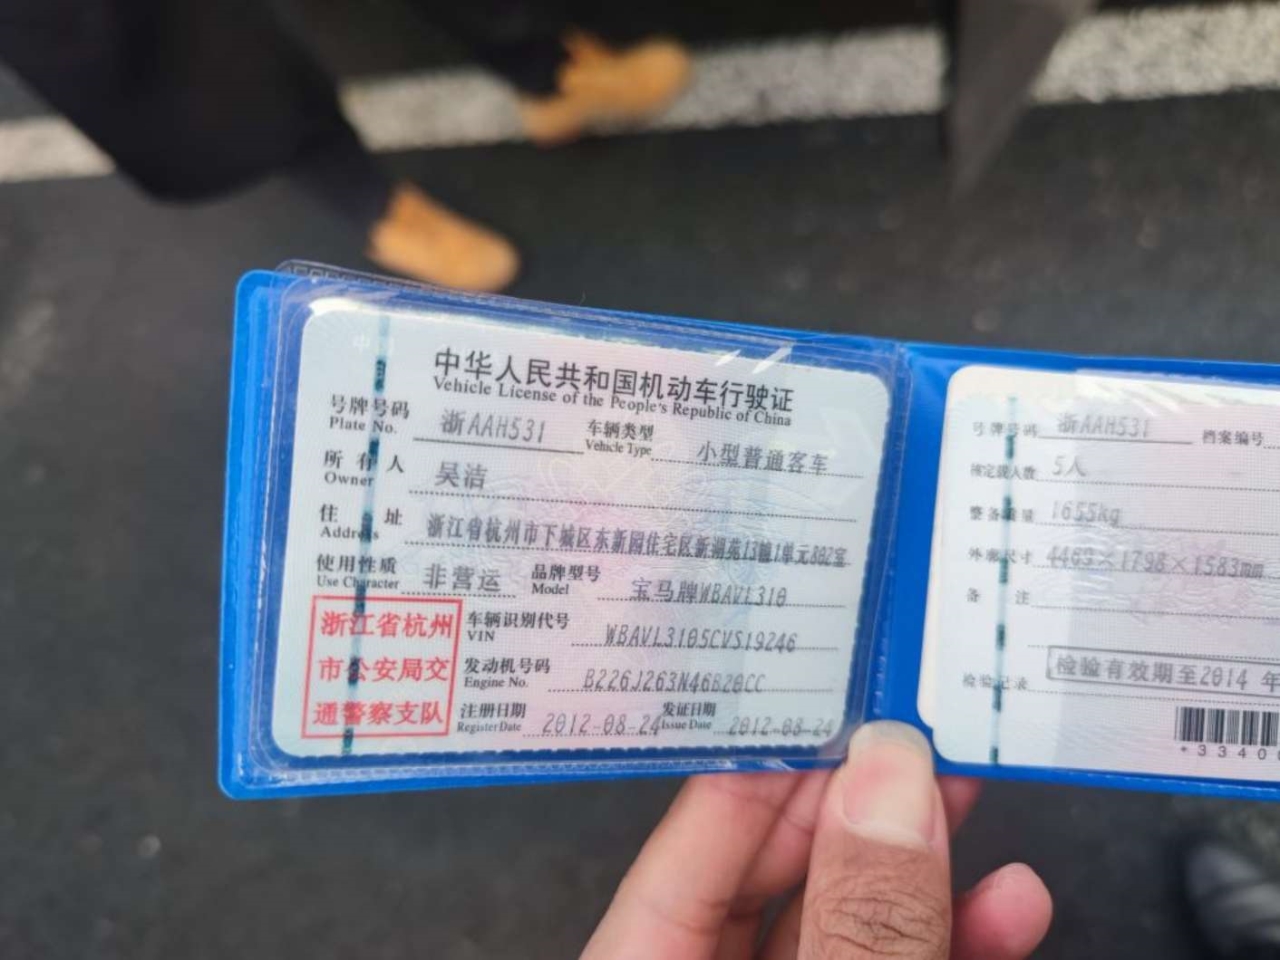 中华人民共和国机动车行驶证
Vehicle License of the People's Republic of China
号牌号码 浙AAH531 车辆类型 小型普通客车
Plate No. Vehicle Type
所有人 吴洁
Owner
住址 浙江省杭州市下城区东新园住宅区新湖苑13幢1单元802室
Address
使用性质 非营运 品牌型号 宝马牌WBAVL310
Use Character Model
浙江省杭州
市公安局交
通警察支队
车辆识别代号 WBAVL3105CVS19246
VIN
发动机号码 B226J263N46B20CC
Engine No.
注册日期 2012-08-24 发证日期 2012-08-24
Register Date Issue Date
号牌号码 浙AAH531 档案编号
核定载人数 5人
整备质量 1655kg
外廓尺寸 4469×1798×1583mm
备注
检验记录 检验有效期至2014 年
*3340